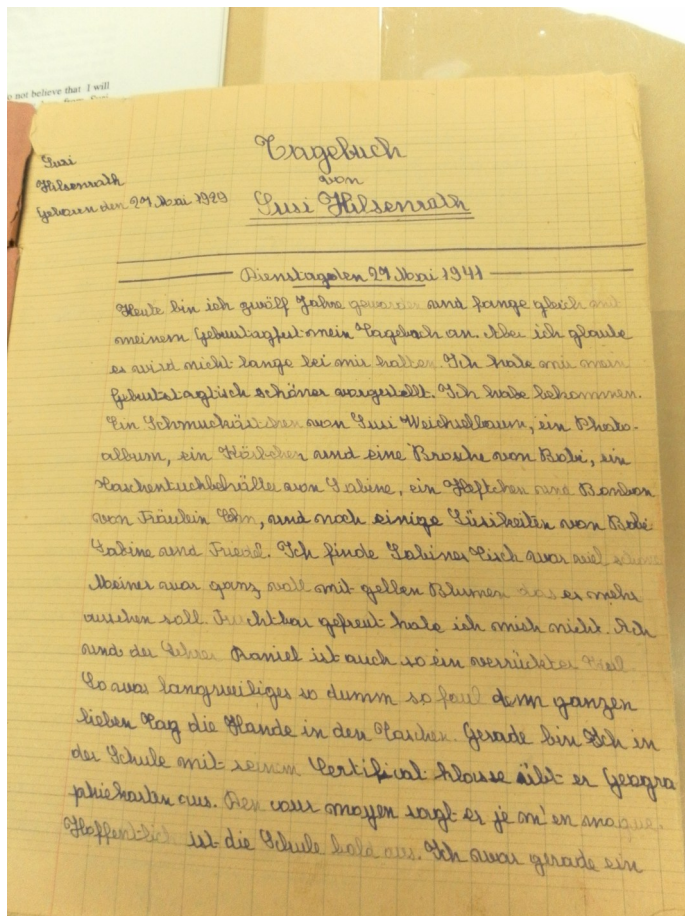 o not believe that I will
Susi
Hilsenrath
Geboren den 27 Mai 1929
Tagebuch
von
Susi Hilsenrath
Dienstag den 27 Mai 1941
Heute bin ich zwölf Jahre geworden und fange gleich mit
meinem Geburtagfut mein Tagebuch an. Aber ich glaube
es wird nicht lange bei mir halten. Ich habe mir mein
Geburtstagtisch schöner vorgestellt. Ich habe bekommen.
Ein Schmuckästchen von Susi Weichselbaum, ein Photo-
album, ein Körbchen und eine Brosche von Bobi, ein
Taschentuchbehälter von Sabine, ein Heftchen und Bonbon
von Fräulein Ohn, und noch einige Süsikeiten von Bobi
Sabine und Friedel. Ich finde Sabines Tisch war viel schöner
Meiner war ganz voll mit gelben Blumen das es mehr
aussehen soll. Fruchtbar gefreut habe ich mich nicht. Ach
und der Lehrer Daniel ist auch so ein verrückter Kerl.
So was langweiliges so dumm so faul denn ganzen
lieben Tag die Hände in den Taschen. Gerade bin Ich in
der Schule mit seinem Certificat klasse übt er Geogra
phiekarten aus. Den cour moyen sagt er je m'en moque.
Hoffentlich ist die Schule bald aus. Ich war gerade ein